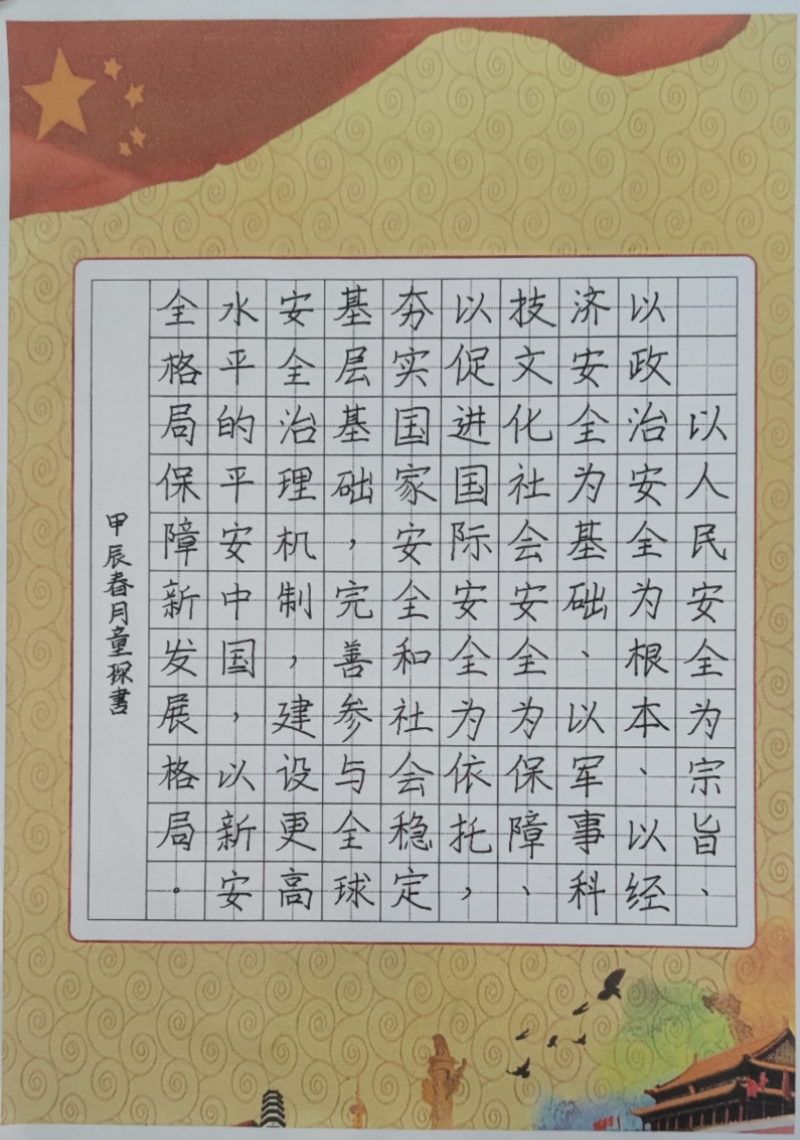 以人民安全为宗旨、
以政治安全为根本、以经
济安全为基础、以军事科
技文化社会安全为保障、
以促进国际安全为依托，
夯实国家安全和社会稳定
基层基础，完善参与全球
安全治理机制，建设更高
水平的平安中国，以新安
全格局保障新发展格局。
甲辰春月童琛書